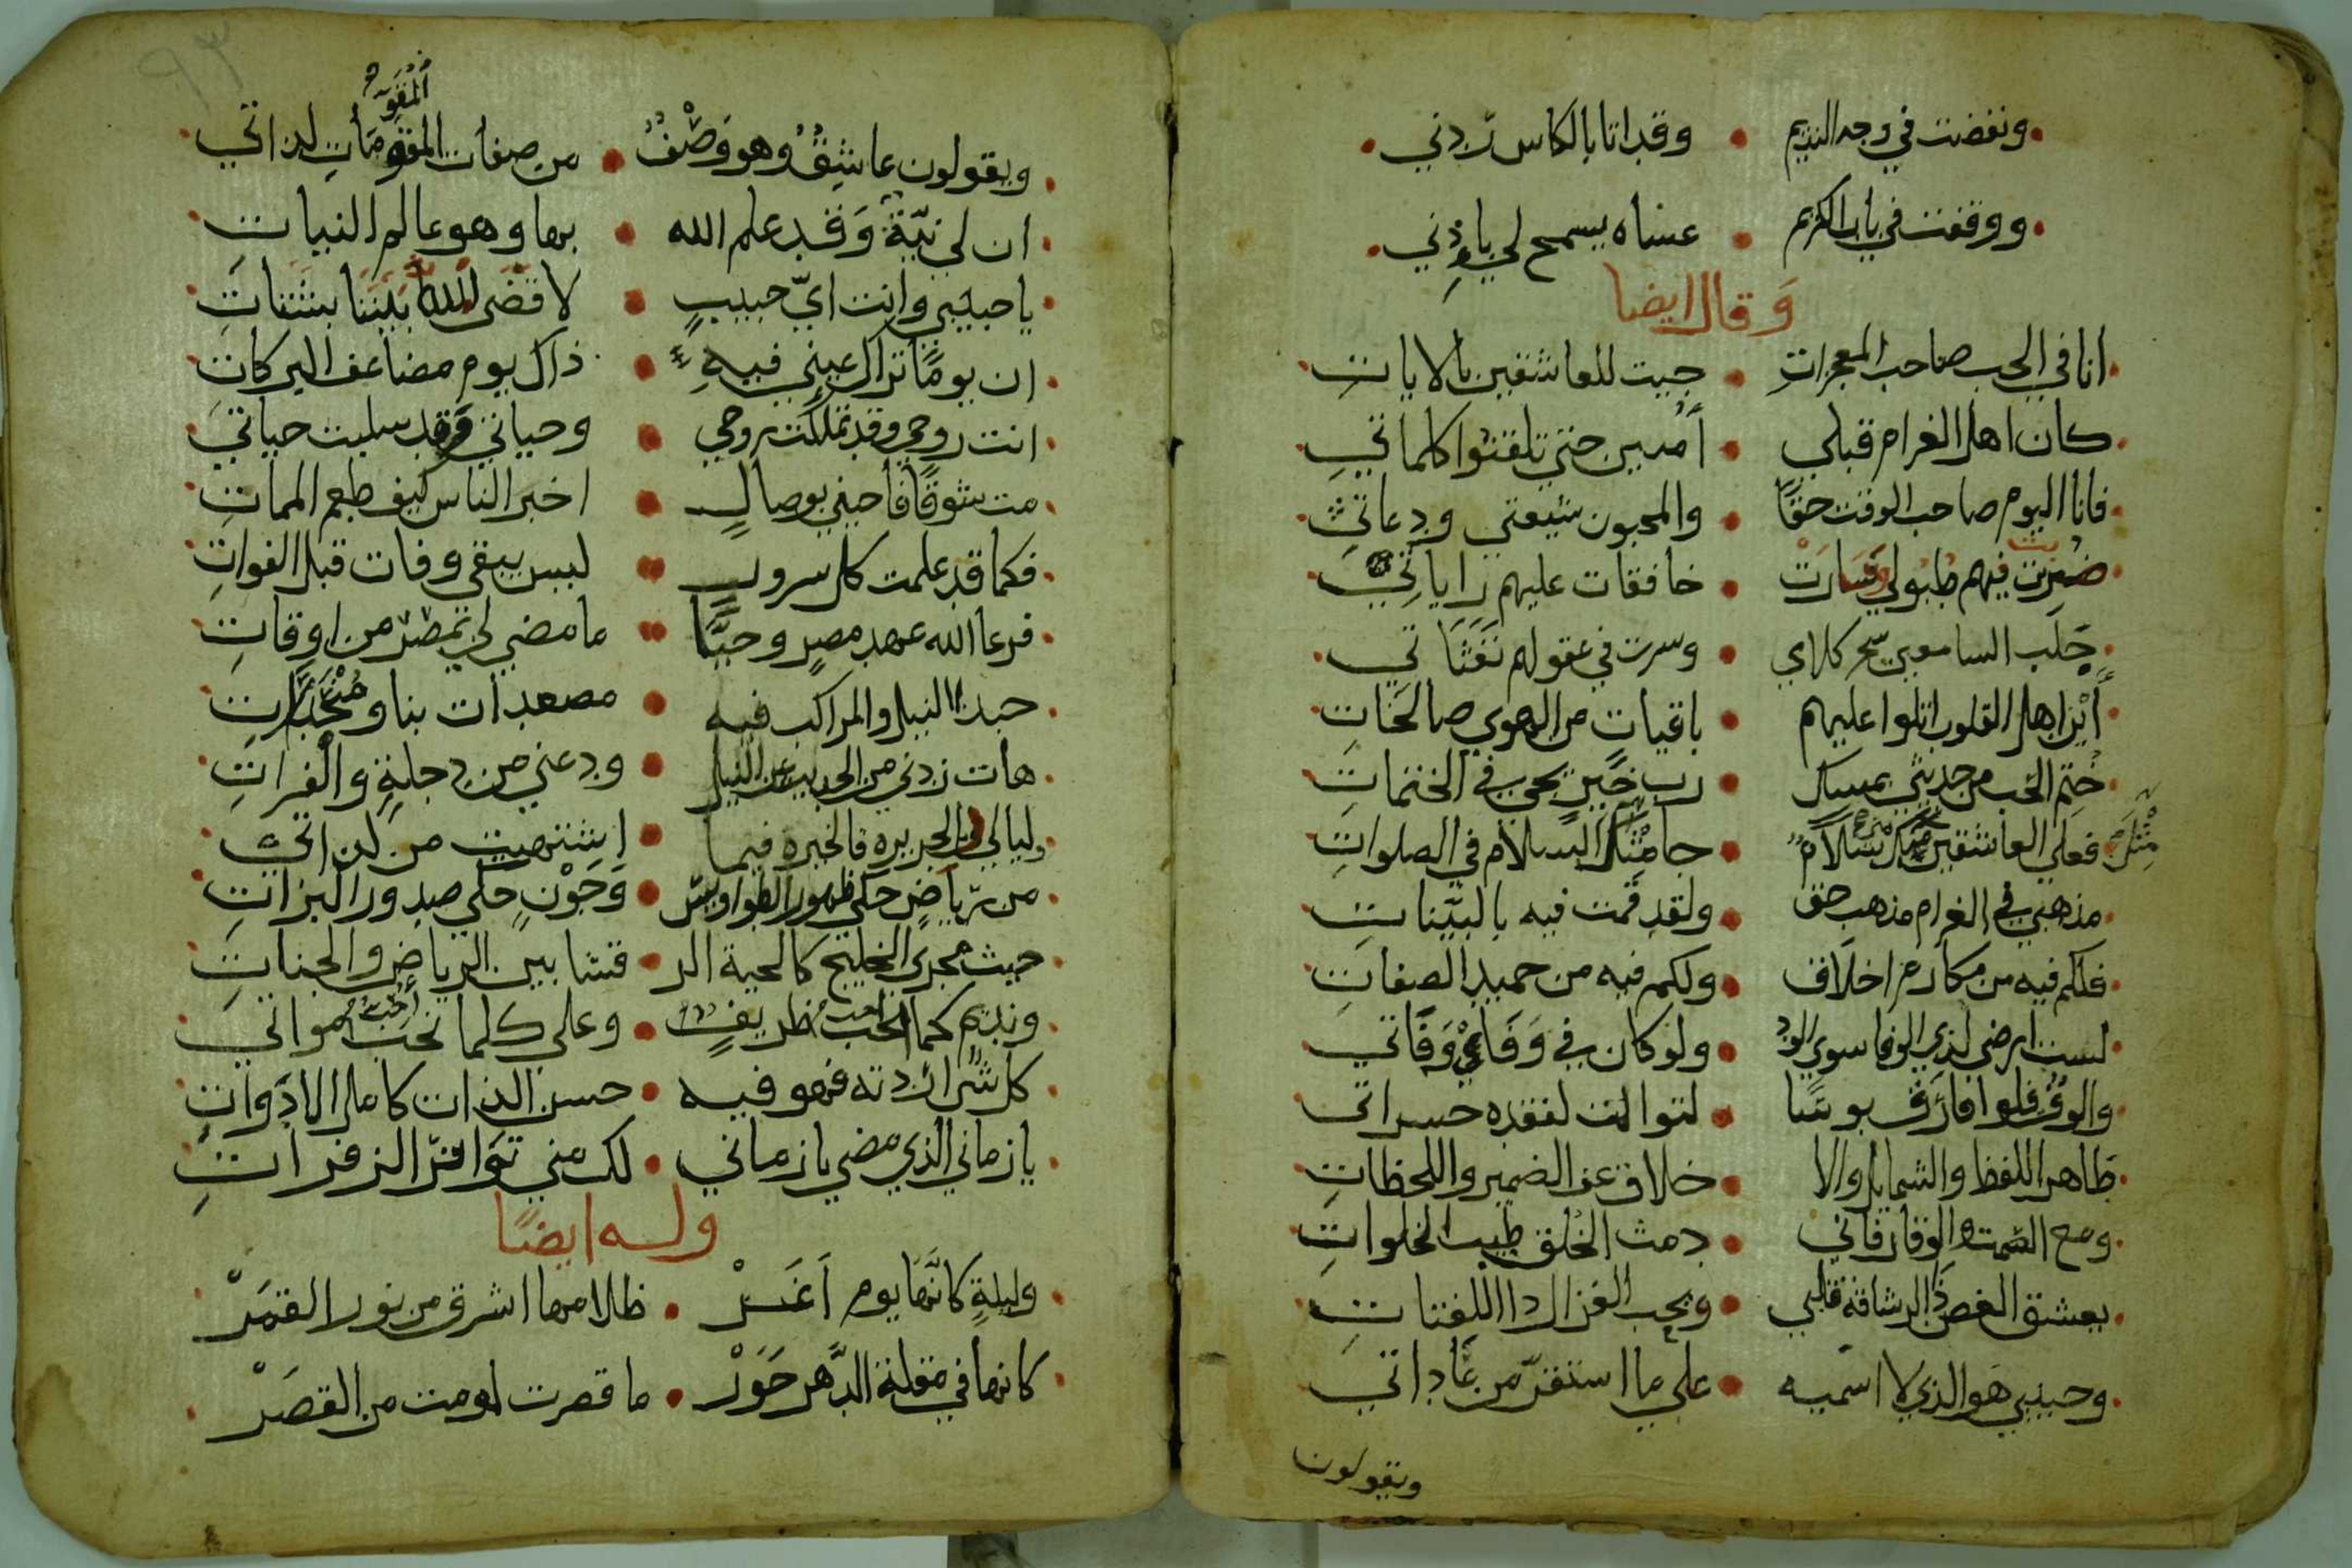 ونفضت في وجه النديم وقد اتا بالكاس زدني
ووقفت في باب الكريم عساه يسمح لي باذني
وقال ايضا
انا في الحب صاحب المعجزات جيت للعاشقين بالايات
كان اهل الغرام قبلي أميين حتى تلقنوا كلماتي
فانا اليوم صاحب الوقت حقًا والمحبون شيعتي ودعاتي
ضُربت فيهم طبولي وسارت خافقات عليهم راياتي
جلب السامعين سحر كلامي وسرت في عقولهم نفثاتي
أين اهل القلوب اتلوا عليهم باقيات من الهوي صالحات
ختم الحب من حديثي بمسك رب خيرٍ يجي في الختمات
فعلي العاشقين مني سلام جا مثل السلام في الصلوات
مثل
مذهبي في الغرام مذهب حق ولقد قمت فيه بالبيّنات
فلكم فيه من مكارم اخلاق ولكم فيه من حميد الصفات
لست ارضي لذي الوفا سوي الود ولو كان في وفائي وفاتي
والوفي فلو افارق بوسًا لتوالت لفقده حسراتي
طاهر اللفظ والشمايل والا خلاق عف الضمير واللحظات
ومع الصمت والوقار فاني دمث الخُلق طيب الخلوات
يعشق الغصن ذا الرشاقة قلبي ويحب الغزال دا اللفتات
وحبيبي هو الذي لا اسميه علي ما استقرّ من عاداتي
ويقولون
ويقولون عاشقٌ وهو وصْفٌ من صفات المقومات لذاتي
المقوّم
ان لي نيّة وقد علم الله بها وهو عالم النيات
يا حبيبي وانت ايّ حبيبٍ لا قضى الله بيننا بشتات
ان يومًا تراك عيني فيهِ ذاك يوم مضاعف البركات
انت روحي وقد تملكت روحي وحياتي وقد سلبت حياتي
مت شوقًا فاحيني بوصالٍ اخبر الناس كيف طعم الممات
فكما قد علمت كل سرور ليس يبقي وفات قبل الفوات
فرعا الله عهد مصرٍ وحيّا ما مضي لي بمصرٍ من اوقات
حبذا النيل والمراكب فيه مصعدات بنا ومنحدرات
هات زدني من الحديث عن النيل ودعني من دجلةٍ والفرات
وليالي بالجزيره فالجيزه فيما اشتهيت من لذاتي
من رياضٍ حكي ظهور الطواويس وجونٍ حكي صدور البزات
حيث مجري الخليج كالحية الر قشا بين الرياض والجنات
ونديم كما احب ظريف وعلي كلما نحب مواتي
أحب
كل شئ اردته فهو فيه حسن الذات كامل الادوات
يا زماني الذي مضي يا زماني لك مني تواتر الزفرات
وله ايضًا
وليلةٍ كانّها يوم أغرْ ظلامها اشرق من نور القمرْ
كانها في مقلة الدّهر حورْ ما قصرت لو سلمت من القصرْ